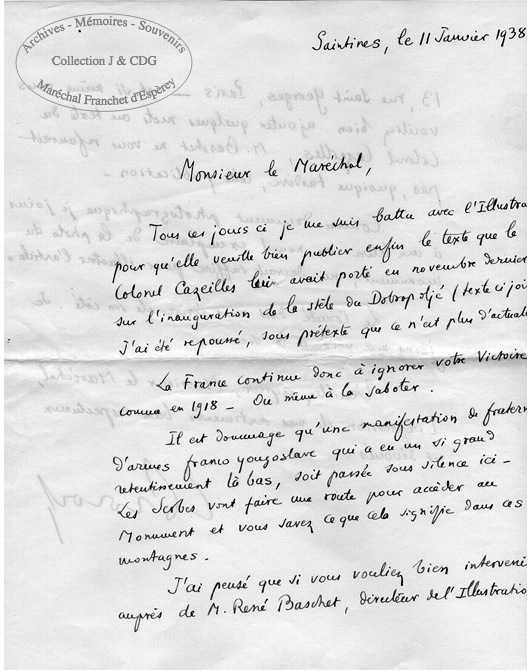 Archives - Mémoires - Souvenirs
Collection J & CDG
Maréchal Franchet d'Espèrey
Saintines, le 11 Janvier 1938
Monsieur le Maréchal,
Tous ces jours ci je me suis battu avec l'Illustra
pour qu'elle veuille bien publier enfin le texte que le
Colonel Cazeilles leur avait porté en novembre dernier
sur l'inauguration de la stèle du Dobropoljé (texte ci joi
J'ai été repoussé, sous prétexte que ce n'est plus d'actual
La France continue donc à ignorer votre Victoire
comme en 1918 - Ou même à la saboter.
Il est dommage qu'une manifestation de fratern
d'armes franco yougoslave qui a eu un si grand
retentissement là bas, soit passée sous silence ici -
Les Serbes vont faire une route pour accéder au
Monument et vous savez ce que cela signifie dans ces
montagnes.
J'ai pensé que si vous vouliez bien interveni
auprès de M. René Baschet, directeur de l'Illustratio